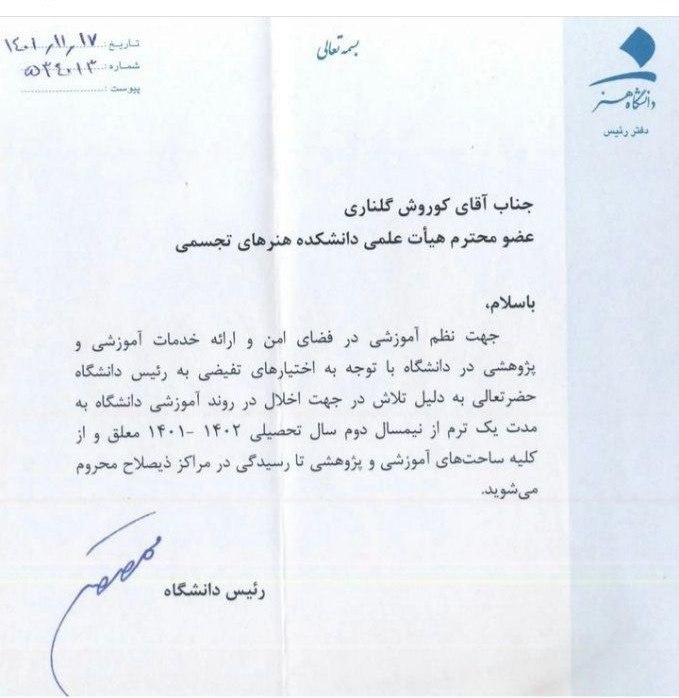 بسمه تعالی
تاریخ: ۱۴۰۱/۱۱/۱۷
شماره:
پیوست:
دانشگاه هنر
دفتر رئیس
جناب آقای کوروش گلناری
عضو محترم هیأت علمی دانشکده هنرهای تجسمی
باسلام،
جهت نظم آموزشی در فضای امن و ارائه خدمات آموزشی و
پژوهشی در دانشگاه با توجه به اختیارهای تفیضی به رئیس دانشگاه
حضرتعالی به دلیل تلاش در جهت اخلال در روند آموزشی دانشگاه به
مدت یک ترم از نیمسال دوم سال تحصیلی ۱۴۰۲ -۱۴۰۱ معلق و از
کلیه ساحت‌های آموزشی و پژوهشی تا رسیدگی در مراکز ذیصلاح محروم
می‌شوید.
رئیس دانشگاه